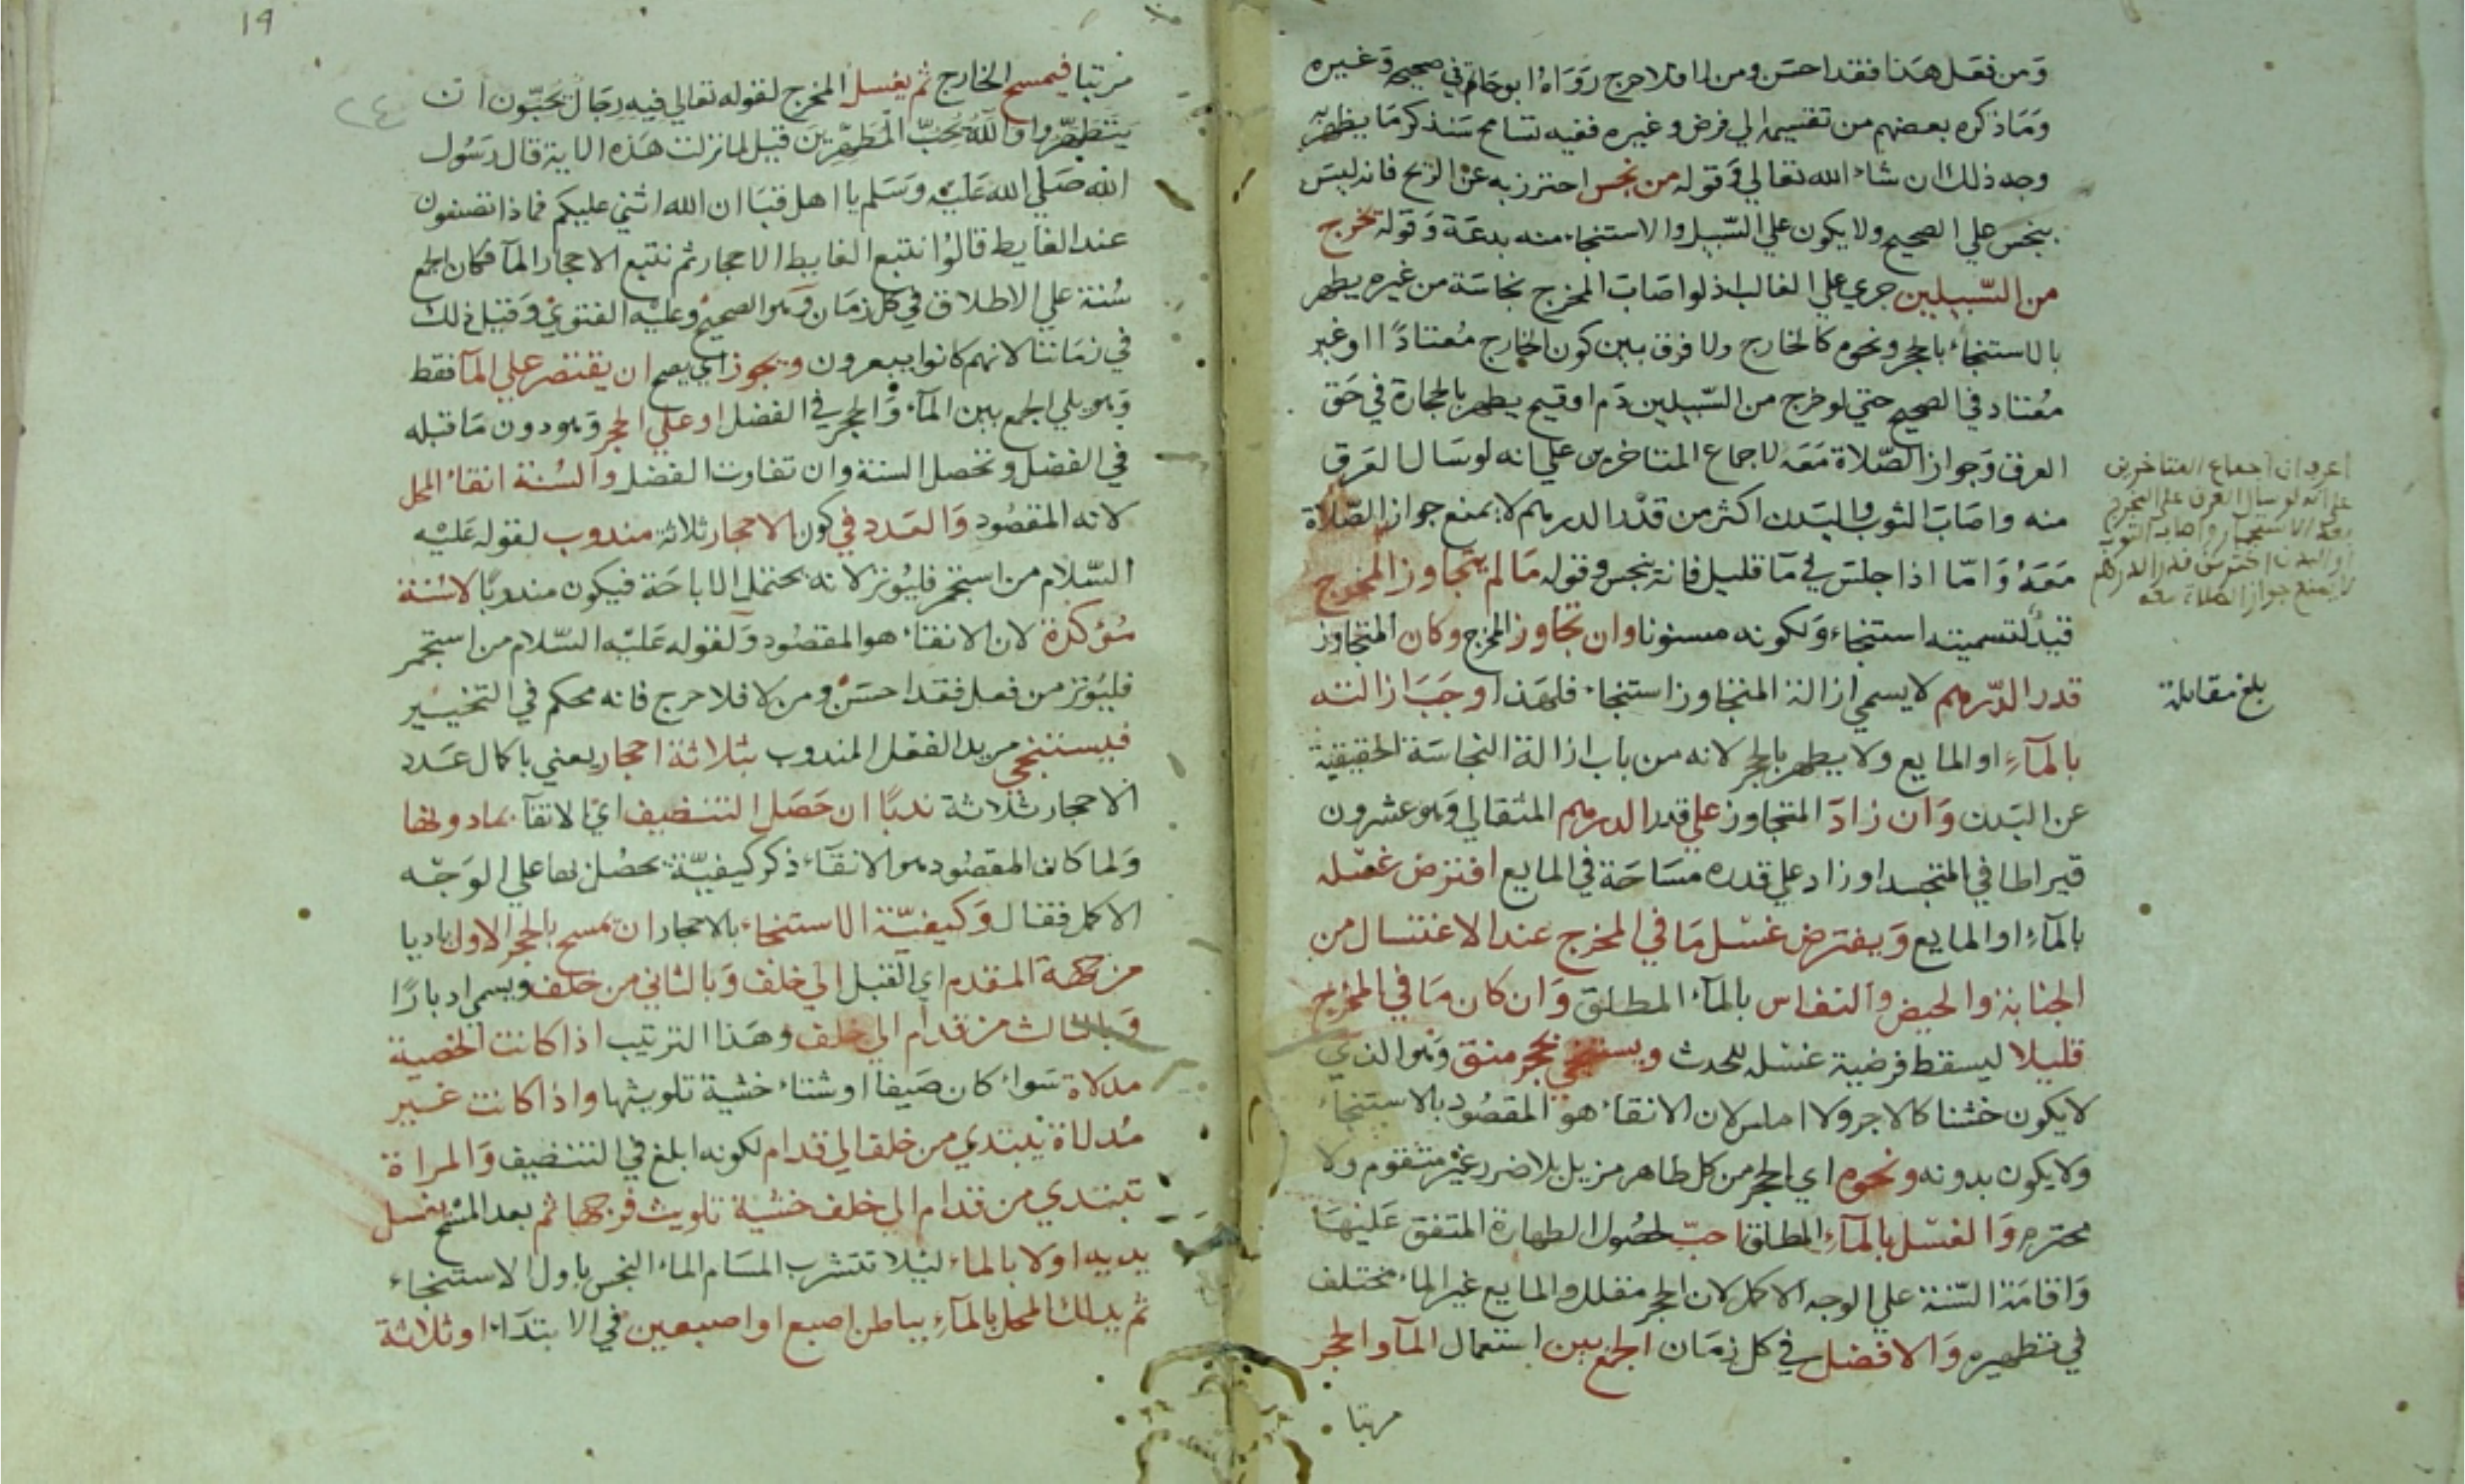 وَمن فعَل هَذا فقد احسَن ومن لا فلا حرج رَوَاهُ ابو حَاتم في صحيحه وَغيره
وَمَا ذكره بعضهم من تقسيمه الي فرض وغيره ففيه تسامح سَنذكر مَا يظهر به
وجه ذلك ان شاء الله تعالي وَقوله من نجس احترز به عن الريح فانه ليسَ
بنجس علي الصحيح ولا يكون علي السّبيل والاستنجاء منه بدعَة وَقوله يخرج
من السّبيلين جري علي الغالب اذ لو اصَابَ المخرج نجاسَة من غيره يطهر
بالاستنجاء بالحجر ونحوه كالخارج ولا فرق بين كون الخارج مُعتادًا او غير
مُعتاد في الصحيح حتي لو خرج من السّبيلين دَم او قيح يطهر بالحجارة في حَق
العرق وَجواز الصّلاة مَعَه لاجماع المتاخرين علي انه لو سَال العَرق
منه واصَابَ الثوب والبَدن اكثر من قَدْر الدرهم لا يمنع جواز الصّلاة
مَعَهُ وَامّا اذا جلسَ في مَا قليل فانه ينجس وقوله مَا لم يتجاوز المخرج
قيدٌ لتسميته استنجاء وَلكونه مسنونا وان تجاوز المخرج وكان المتجاوز
قدر الدّرهم لا يسمي ازالة المتجاوز استنجاء فلهَذا وجَبَ ازالته
بالمآءِ او المايع ولا يطهر بالحجر لانه من باب ازالة النجاسَة الحقيقية
عن البَدن وَان زادَ المتجاوز علي قدر الدرهم المثقالي وَهو عشرون
قيراطا في المتجسد او زاد علي قدره مسَاحَة في المايع افترض غسْله
بالمآءِ او المايع وَيفترض غسْل مَا في المخرج عند الاغتسال من
الجنابة والحيض والنفاس بالمآء المطلق وَان كان مَا في المخرج
قليلا ليسقط فرضية غسْله للحدث ويستنجي بحجر منق وَهو الذي
لا يكون خشنا كالاجر ولا املس لان الانقاء هو المقصُود بالاستنجاء
ولا يكون بدونه ونحوه اي الحجر من كل طاهر مزيل بلا ضرر غير متقوم ولا
محترم وَالغسْل بالمآءِ المطلق احبّ لحصُول الطهارة المتفق عَليهَا
وَاقامَة السّنة علي الوجه الاكمل لان الحجر مقلل والمايع غير الماء مختلف
في تطهيره وَالافضل في كل زمَان الجمع بين استعمال المآ والحجر
مرتبا
اعرف ان اجماع المتاخرين
علي انه لو سال العرق علي المخرج
بعد الاستجمار واصاب الثوب
او البدن اكثر من قدر الدرهم
لا يمنع جواز الصلاة معه
بلغ مقابلة
19
٢٤
مرتبا فيمسح الخارج ثم يغسل المخرج لقوله تعالي فيه رجَال يُحبّون ان
يتطهّروا وَاللّهُ يُحبّ المُطهّرينَ قيل لما نزلت هَذه الاية قال رَسُول
الله صَلي الله عَليْه وَسَلم يا اهل قبَا ان الله اثني عليكم فماذا تصنعون
عند الغايط قالوُا نتبع الغايط الاحجار ثم نتبع الاحجار المآ فكان الجمع
سُنة علي الاطلاق في كل زمَان وَهو الصحيح وعليْه الفتوي وَقيل ذلك
في زمَاننا لانهم كانوا يبعرون ويجوز اي يصح ان يقتصر علي المآ فقط
وَهو يلي الجمع بين المآء وَالحجر في الفضل او علي الحجر وَهو دون مَا قبله
في الفضل وتحصل السنة وان تفاوت الفضل والسُنة انقاء المحل
لانه المقصُود وَالعَدد في كون الاحجار ثلاثة مندوب لقوله عَليْه
السّلام من استجمر فليُوتر لانه يحتمل الاباحَة فيكون مندوبًا لا سُنة
مُؤكدة لان الانقاء هو المقصُود وَلقوله عَليْه السّلام من استجمر
فليُوتر من فعل فقد احسَن ومن لا فلا حرج فانه محكم في التخيير
فيستنجي مريد الفعل المندوب بثلاثة احجار يعني باكمال عَدد
الاحجار ثلاثة ندبًا ان حَصَل التنظيف اي الانقآ بما دونها
وَلما كان المقصُود هو الانقآء ذكر كيفيّة يحصُل بها علي الوَجْه
الاكمل فقال وَكيفيّة الاستنجاء بالاحجار ان يمسح بالحجر الاول باديا
من جهة المقدم اي القبل الي خلف وَبالثاني من خلف ويسمي ادبارًا
وَبالثالث من قدام الي خلف وهَذا الترتيب اذا كانت الخصية
مدلاة سَواء كان صَيفا او شتاء خشية تلويثها واذا كانت غير
مُدلاة يبتدي من خلف الي قدام لكونه ابلغ في التنظيف وَالمراة
تبتدي من قدام الي خلف خشية تلويث فرجها ثم بعد المسْح يغسل
يديه اولا بالماء ليلا تتشرب المسَام الماء النجس باول الاستنجاء
ثم يدلك المحل بالمآءِ بباطن اصبع او اصبعين في الابتدَاء او ثلاثة